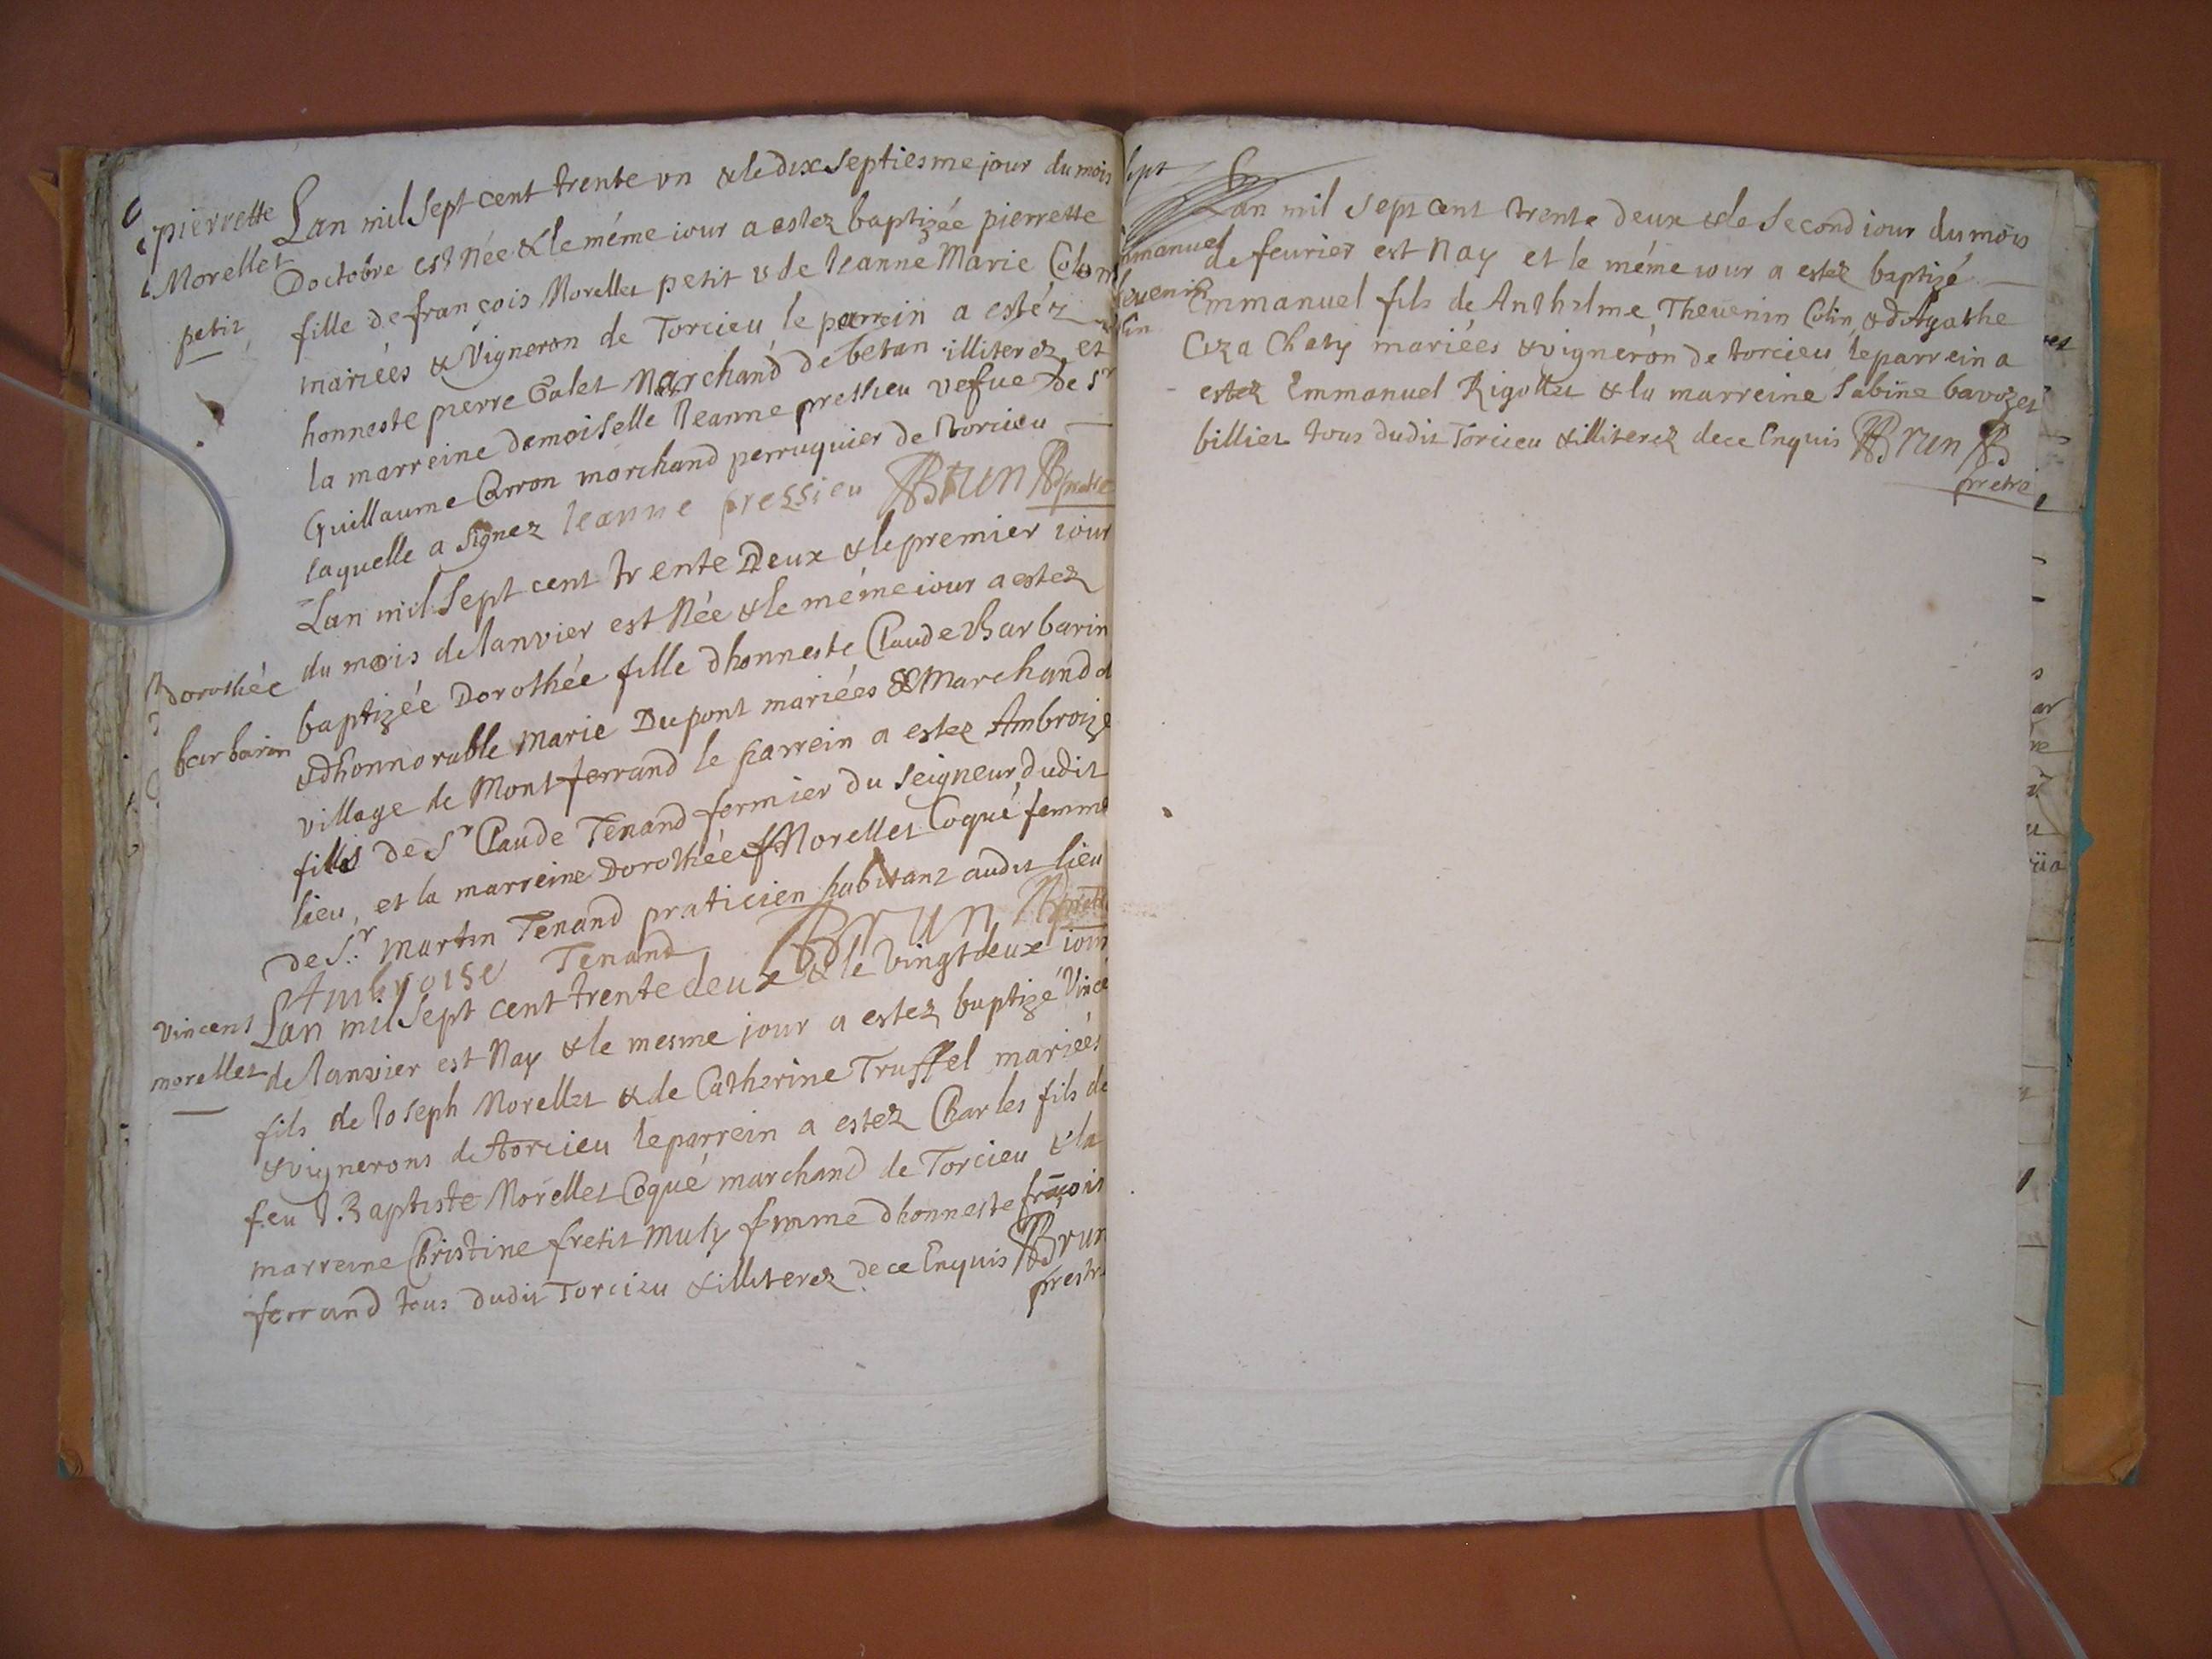 pierrette
Morellet
petit
Lan mil Sept cent trente un & le dix Septiesme jour du mois
Doctobre est Née & le méme iour a estez baptizée pierrette
fille de françois Morellet petit & de Jeanne Marie Colom
mariées & Vigneron de Torcieu le parrein a estéz
honneste pierre Galet Marchand de betan illiterez et
la marreine demoiselle Jeanne pressieu vefue de Sr
Guillaume Carron marchand perruquier de torcieu
laquelle a Signez Jeanne pressieu Brun pretre
Dorothée
barbarin
Lan mil Sept cent trente Deux & le premier iour
du mois de Janvier est Née & le méme iour a estez
baptizée Dorothée fille dhonneste Claude Barbarin
& dhonnorable Marie Dupont mariées & Marchand d
village de Montferrand le parrein a estez Ambroize
fils de Sr Claude Tenand fermier du Seigneur dudit
lieu, et la marreine Dorothée Morellet Coqué femme
de Sr Martin Tenand praticien habitant audit lieu
Ambroise Tenand Brun pretre
Vincent
morellet
Lan mil Sept cent trente deux & le vingt deux iour
de Janvier est Nay & le mesme jour a estez baptizé Vince
fils de Joseph Morellet & de Catherine Truffel mariées
& vignerons de torcieu le parrein a estez Charles fils de
feu J. Baptiste Morellet Coqué marchand de Torcieu & la
marreine Christine fretit Muly femme dhonneste frãçois
ferrand tous dudit Torcieu & illiterez de ce Enquis Brun
prestr
sept
mmanuel
heuenin
lin
Lan mil Sept cent trente deux & le Second iour du mois
de feurier est Nay et le méme iour a estez baptizé
Emmanuel fils de Anthelme Theuenin Colin & dAgathe
Coza Chaty mariées & vigneron de torcieu le parrein a
estez Emmanuel Rigollet & la marreine Sabine bavozet
billiet tous dudit Torcieu & illiterez de ce Enquis Brun
pretre